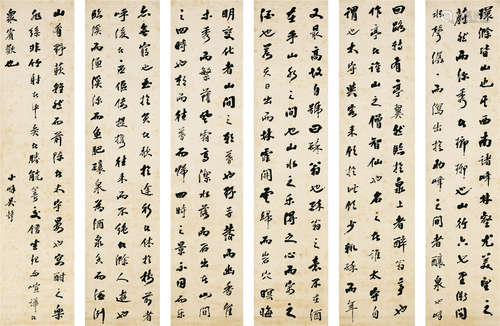 環滁皆山也其西南諸峰林壑尤美望之
蔚然而深秀者瑯琊也山行六七里漸聞
水聲潺潺而瀉出於兩峰之間者釀泉也峰
回路轉有亭翼然臨於泉上者醉翁亭也
作亭者誰山之僧智仙也名之者誰太守自
謂也太守與客來飲於此飲少輒醉而年
又最高故自號曰醉翁也醉翁之意不在酒
在乎山水之間也山水之樂得之心而寓之
酒也若夫日出而林霏開雲歸而岩穴暝晦
明變化者山間之朝暮也野芳發而幽香佳
木秀而繁陰風霜高潔水落而石出者山間
之四時也朝而往暮而歸四時之景不同而
亦無窮也至於負者歌於途行者休於樹前者
呼後者應傴僂提攜往來而不絕者滁人遊也
臨溪而漁溪深而魚肥釀泉為酒泉香而酒洌
山肴野蔌雜然而前陳者太守宴也宴酣之樂
非絲非竹射者中弈者勝觥籌交錯坐起而喧譁者
眾賓歡也